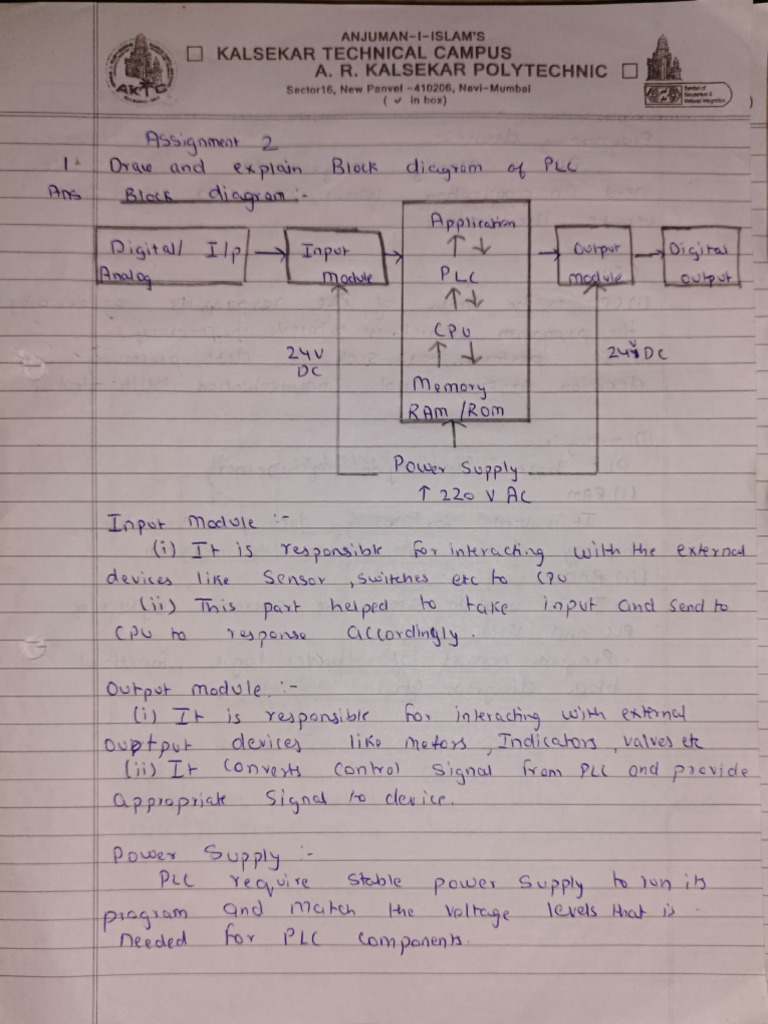 ANJUMAN-I-ISLAM'S
KALSEKAR TECHNICAL CAMPUS
A. R. KALSEKAR POLYTECHNIC
Sector16, New Panvel -410206, Navi-Mumbai
( ✓ in box)
AKTC
Assignment 2
1. Draw and explain Block diagram of PLC
Ans Block diagram:-
Digital/ I/p
Analog
Input
module
Application
PLC
CPU
Memory
RAM /ROM
Output
module
Digital
output
24V
DC
24V DC
Power Supply
↑ 220 V AC
Input Module :-
(i) It is responsible for interacting with the external
devices like Sensor, switches etc to CPU
(ii) This part helped to take input and send to
CPU to response accordingly.
Output module :-
(i) It is responsible for interacting with external
ouptput devices like motors, Indicators, valves etc
(ii) It converts control signal from PLC and provide
appropriate signal to device.
Power Supply :-
PLC require stable power supply to run its
program and match the voltage levels that is
needed for PLC components.